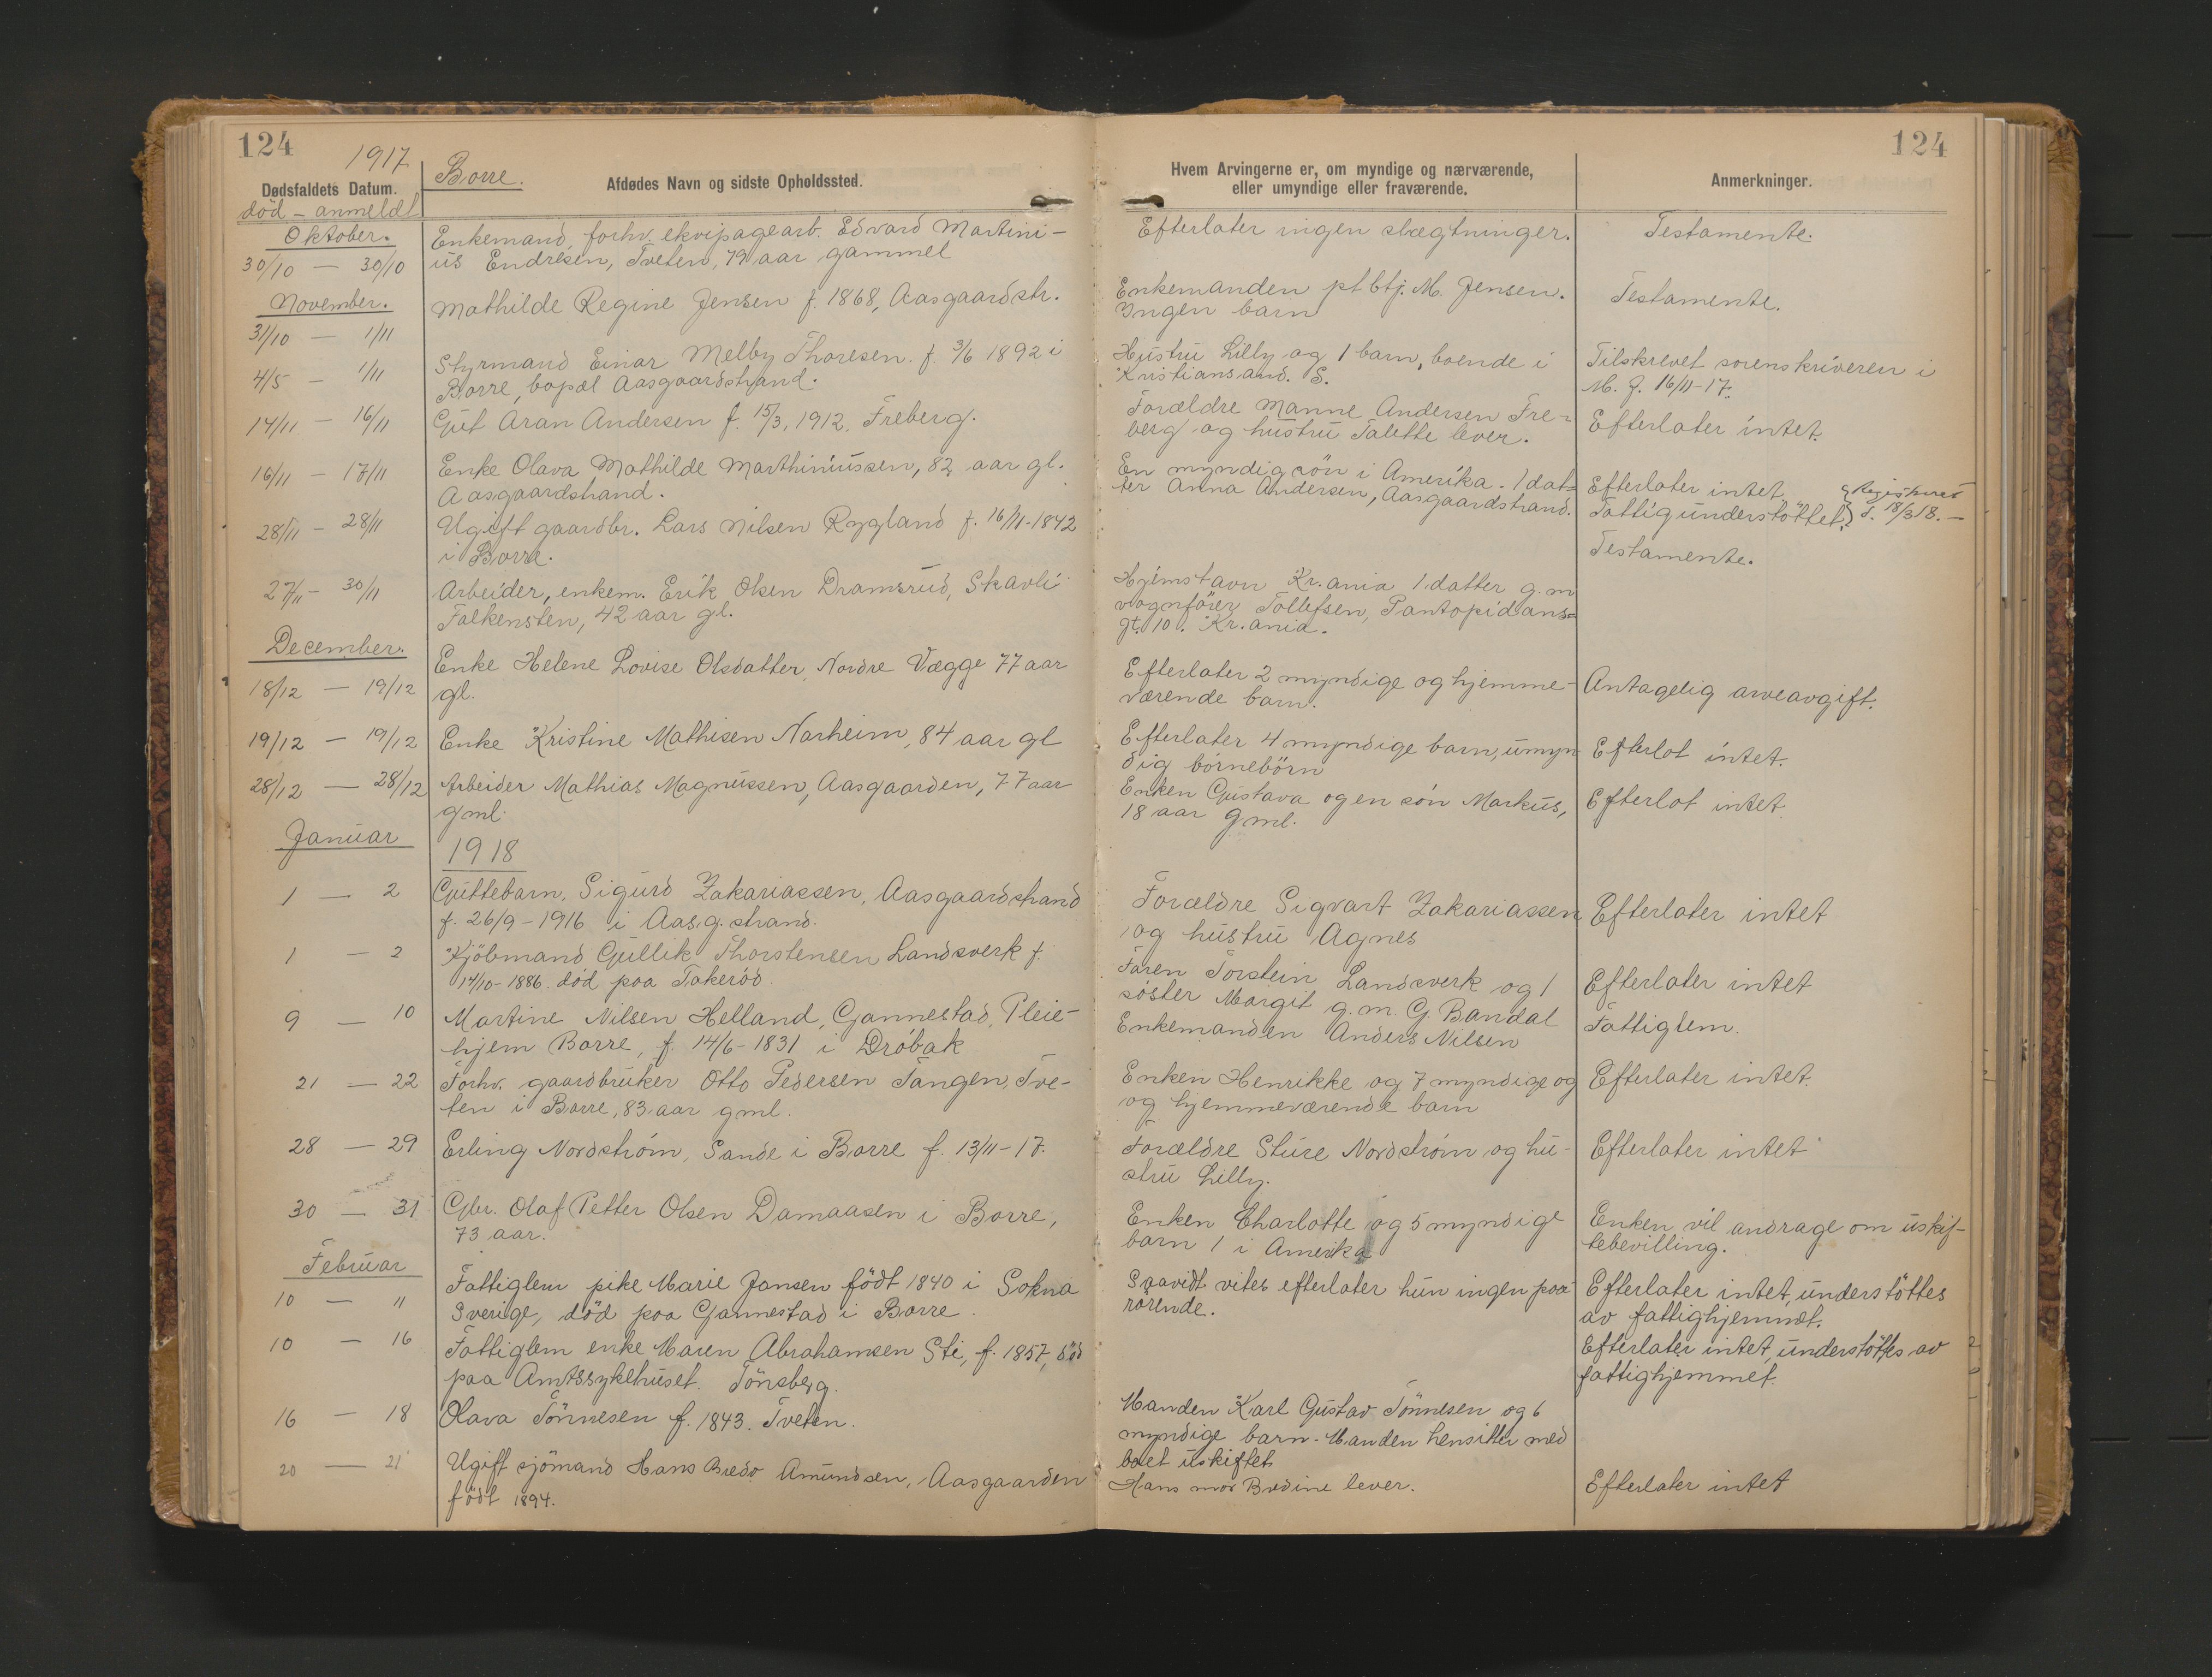 124
1917
Borre.
Dødsfaldets Datum.
Afdødes Navn og sidste Opholdssted.
død - anmeldt
Oktober.
30/10 — 30/10
Enkemand, forhv. ekvipagearb. Edvard Martini-
us Endresen, Tveten, 79 aar gammel
November.
31/10 — 1/11
Mathilde Regine Jensen f. 1868, Aasgaardstr.
4/5 — 1/11
Styrmand Einar Melby Thoresen. f. 3/6 1892 i
Borre, bopæl Aasgaardstrand.
14/11 — 16/11
Gut Aran Andersen f. 15/3, 1912, Freberg.
16/11 — 17/11
Enke Olava Mathilde Marthiniussen, 82 aar gl.
Aasgaardstrand.
28/11 — 28/11
Ugift gaardbr. Lars Nilsen Rygland f. 16/11-1842
i Borre.
27/11 — 30/11
Arbeider, enkem. Erik Olsen Dramsrud, Skavli
Falkensten, 42 aar gl.
December.
18/12 — 19/12
Enke Helene Lovise Olsdatter, Nordre Vægge 77 aar
gl.
19/12 — 19/12
Enke Kristine Mathisen Narheim, 84 aar gl
28/12 — 28/12
Arbeider Mathias Magnussen, Aasgaarden, 77 aar
gml.
Januar
1918
1 — 2
Guttebarn, Sigurd Zakariassen, Aasgaardstrand
f. 26/9-1916 i Aasg.strand.
1 — 2
Kjöbmand Gullik Thorstensen Landsverk f.
14/10-1886. död paa Takeröd.
9 — 10
Martine Nilsen Helland, Gannestad, Pleie-
hjem Borre, f. 14/6-1831 i Dröbak
21 — 22
Forhv. gaardbruker Otto Pedersen Tangen, Tve-
ten i Borre, 83 aar gml.
28 — 29
Erling Nordström, Sande i Borre f. 13/11-17.
30 — 31
Gbr. Olaf Petter Olsen Damaasen i Borre,
73 aar.
Februar
10 — 11
Fattiglem pike Marie Jansen födt 1840 i Sokna
Sverige, död paa Gannestad i Borre.
10 — 16
Fattiglem enke Maren Abrahamsen Sti, f. 1857, död
paa Amtssykehuset. Tönsberg.
16 — 18
Olava Tönnesen f. 1843. Tveten.
20 — 21
Ugift sjömand Hans Bredo Amundsen, Aasgaarden
födt 1894.
124
Hvem Arvingerne er, om myndige og nærværende,
eller umyndige eller fraværende.
Anmerkninger.
Efterlater ingen slægtninger.
Testamente.
Enkemanden ptbtj. M. Jensen.
Ingen barn
Testamente.
Hustru Lilly og 1 barn, boende i
Kristiansand. S.
Tilskrevet sorenskriveren i
M. J. 16/11-17.
Forældre Manne Andersen Fre-
berg og hustru Talette lever.
Efterlater intet.
En myndig sön i Amerika. 1 dat-
ter Anna Andersen, Aasgaardstrand.
Efterlater intet.
Fattigunderstöttet.
Registreret
d. 18/3 18. —
Testamente.
Hjemstavn Kr.ania 1 datter g. m
vognförer Tollefsen, Pantopidans-
gt. 10. Kr.ania.
Efterlater 2 myndige og hjemme-
værende barn.
Antagelig arveavgift.
Efterlater 4 myndige barn, umyn
dig börnebörn
Efterlot intet.
Enken Gustava og en sön Markus,
18 aar gml.
Efterlot intet.
Forældre Sigvart Zakariassen
og hustru Agnes
Efterlater intet
Faren Torstein Landsverk og 1
söster Margit g. m. G. Bandal
Efterlater intet
Enkemanden Anders Nilsen
Fattiglem.
Enken Henrikke og 7 myndige og
og hjemmeværende barn
Efterlater intet.
Forældre Sture Nordström og hu-
stru Lilly.
Efterlater intet
Enken Charlotte og 5 myndige
barn 1 i Amerika
Enken vil andrage om uskif-
tebevilling.
Saavidt vites efterlater hun ingen paa
rörende.
Efterlater intet, understöttes
av fattighjemmet.
Efterlater intet, understöttes av
fattighjemmet.
Manden Karl Gustav Tönnesen og 6
myndige barn. Manden hensitter med
boet uskiftet.
Hans mor Bredine lever.
Efterlater intet